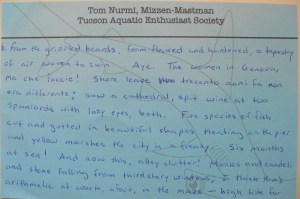 Tom Nurmi, Mizzen-Mastman
Tucson Aquatic Enthusiast Society
from the grizzled beards, foam-flecked and hardened, a tapestry
of air proven to swim. Aye. The women in Genova,
ma che faccie! Shore leave trecento anni fa non
era differente: saw a cathedral, spit wine at two
Spaniards with lazy eyes, both. Five species of fish
cut and gutted in beautiful shapes. Heading up the pier
and yellow marshes the city is a frenzy. Six months
at sea! And now this, alley clutter! Monies and candels
and stone falling from third story windows, I think there's
arithmetic at work, above, in the maze — high tide for